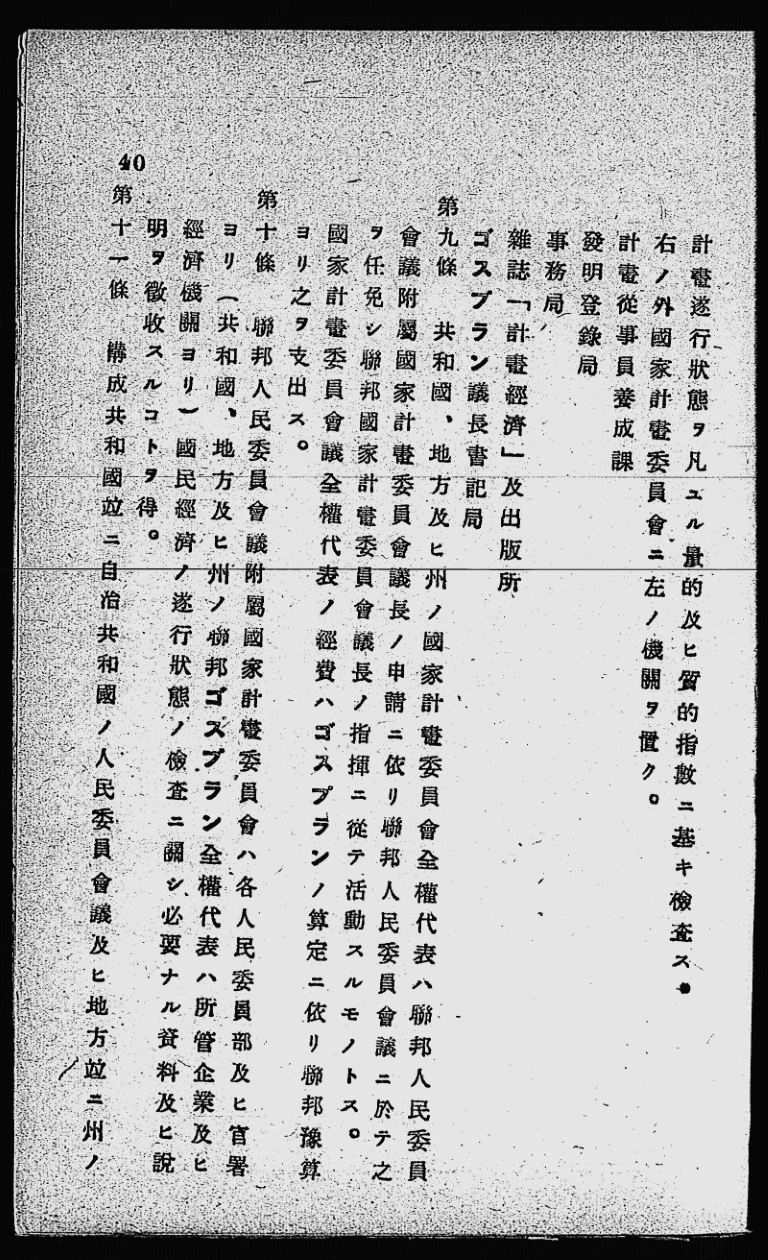 計畫遂行狀態ヲ凡ユル量的及ヒ質的指數ニ基キ檢査ス。
右ノ外國家計畫委員會ニ左ノ機關ヲ置ク。
計畫從事員養成課
發明登錄局
事務局
雜誌「計畫經濟」及出版所
ゴスプラン議長書記局
第九條　共和國、地方及ヒ州ノ國家計畫委員會全權代表ハ聯邦人民委員
會議附屬國家計畫委員會議長ノ申請ニ依リ聯邦人民委員會議ニ於テ之
ヲ任免シ聯邦國家計畫委員會議長ノ指揮ニ從テ活動スルモノトス。
國家計畫委員會議全權代表ノ經費ハゴスプランノ算定ニ依リ聯邦豫算
ヨリ之ヲ支出ス。
第十條　聯邦人民委員會議附屬國家計畫委員會ハ各人民委員部及ヒ官署
ヨリ（共和國、地方及ヒ州ノ聯邦ゴスプラン全權代表ハ所管企業及ヒ
經濟機關ヨリ）國民經濟ノ遂行狀態ノ檢査ニ關シ必要ナル資料及ヒ說
明ヲ徵收スルコトヲ得。
第十一條　構成共和國竝ニ自治共和國ノ人民委員會議及ヒ地方竝ニ州ノ
40